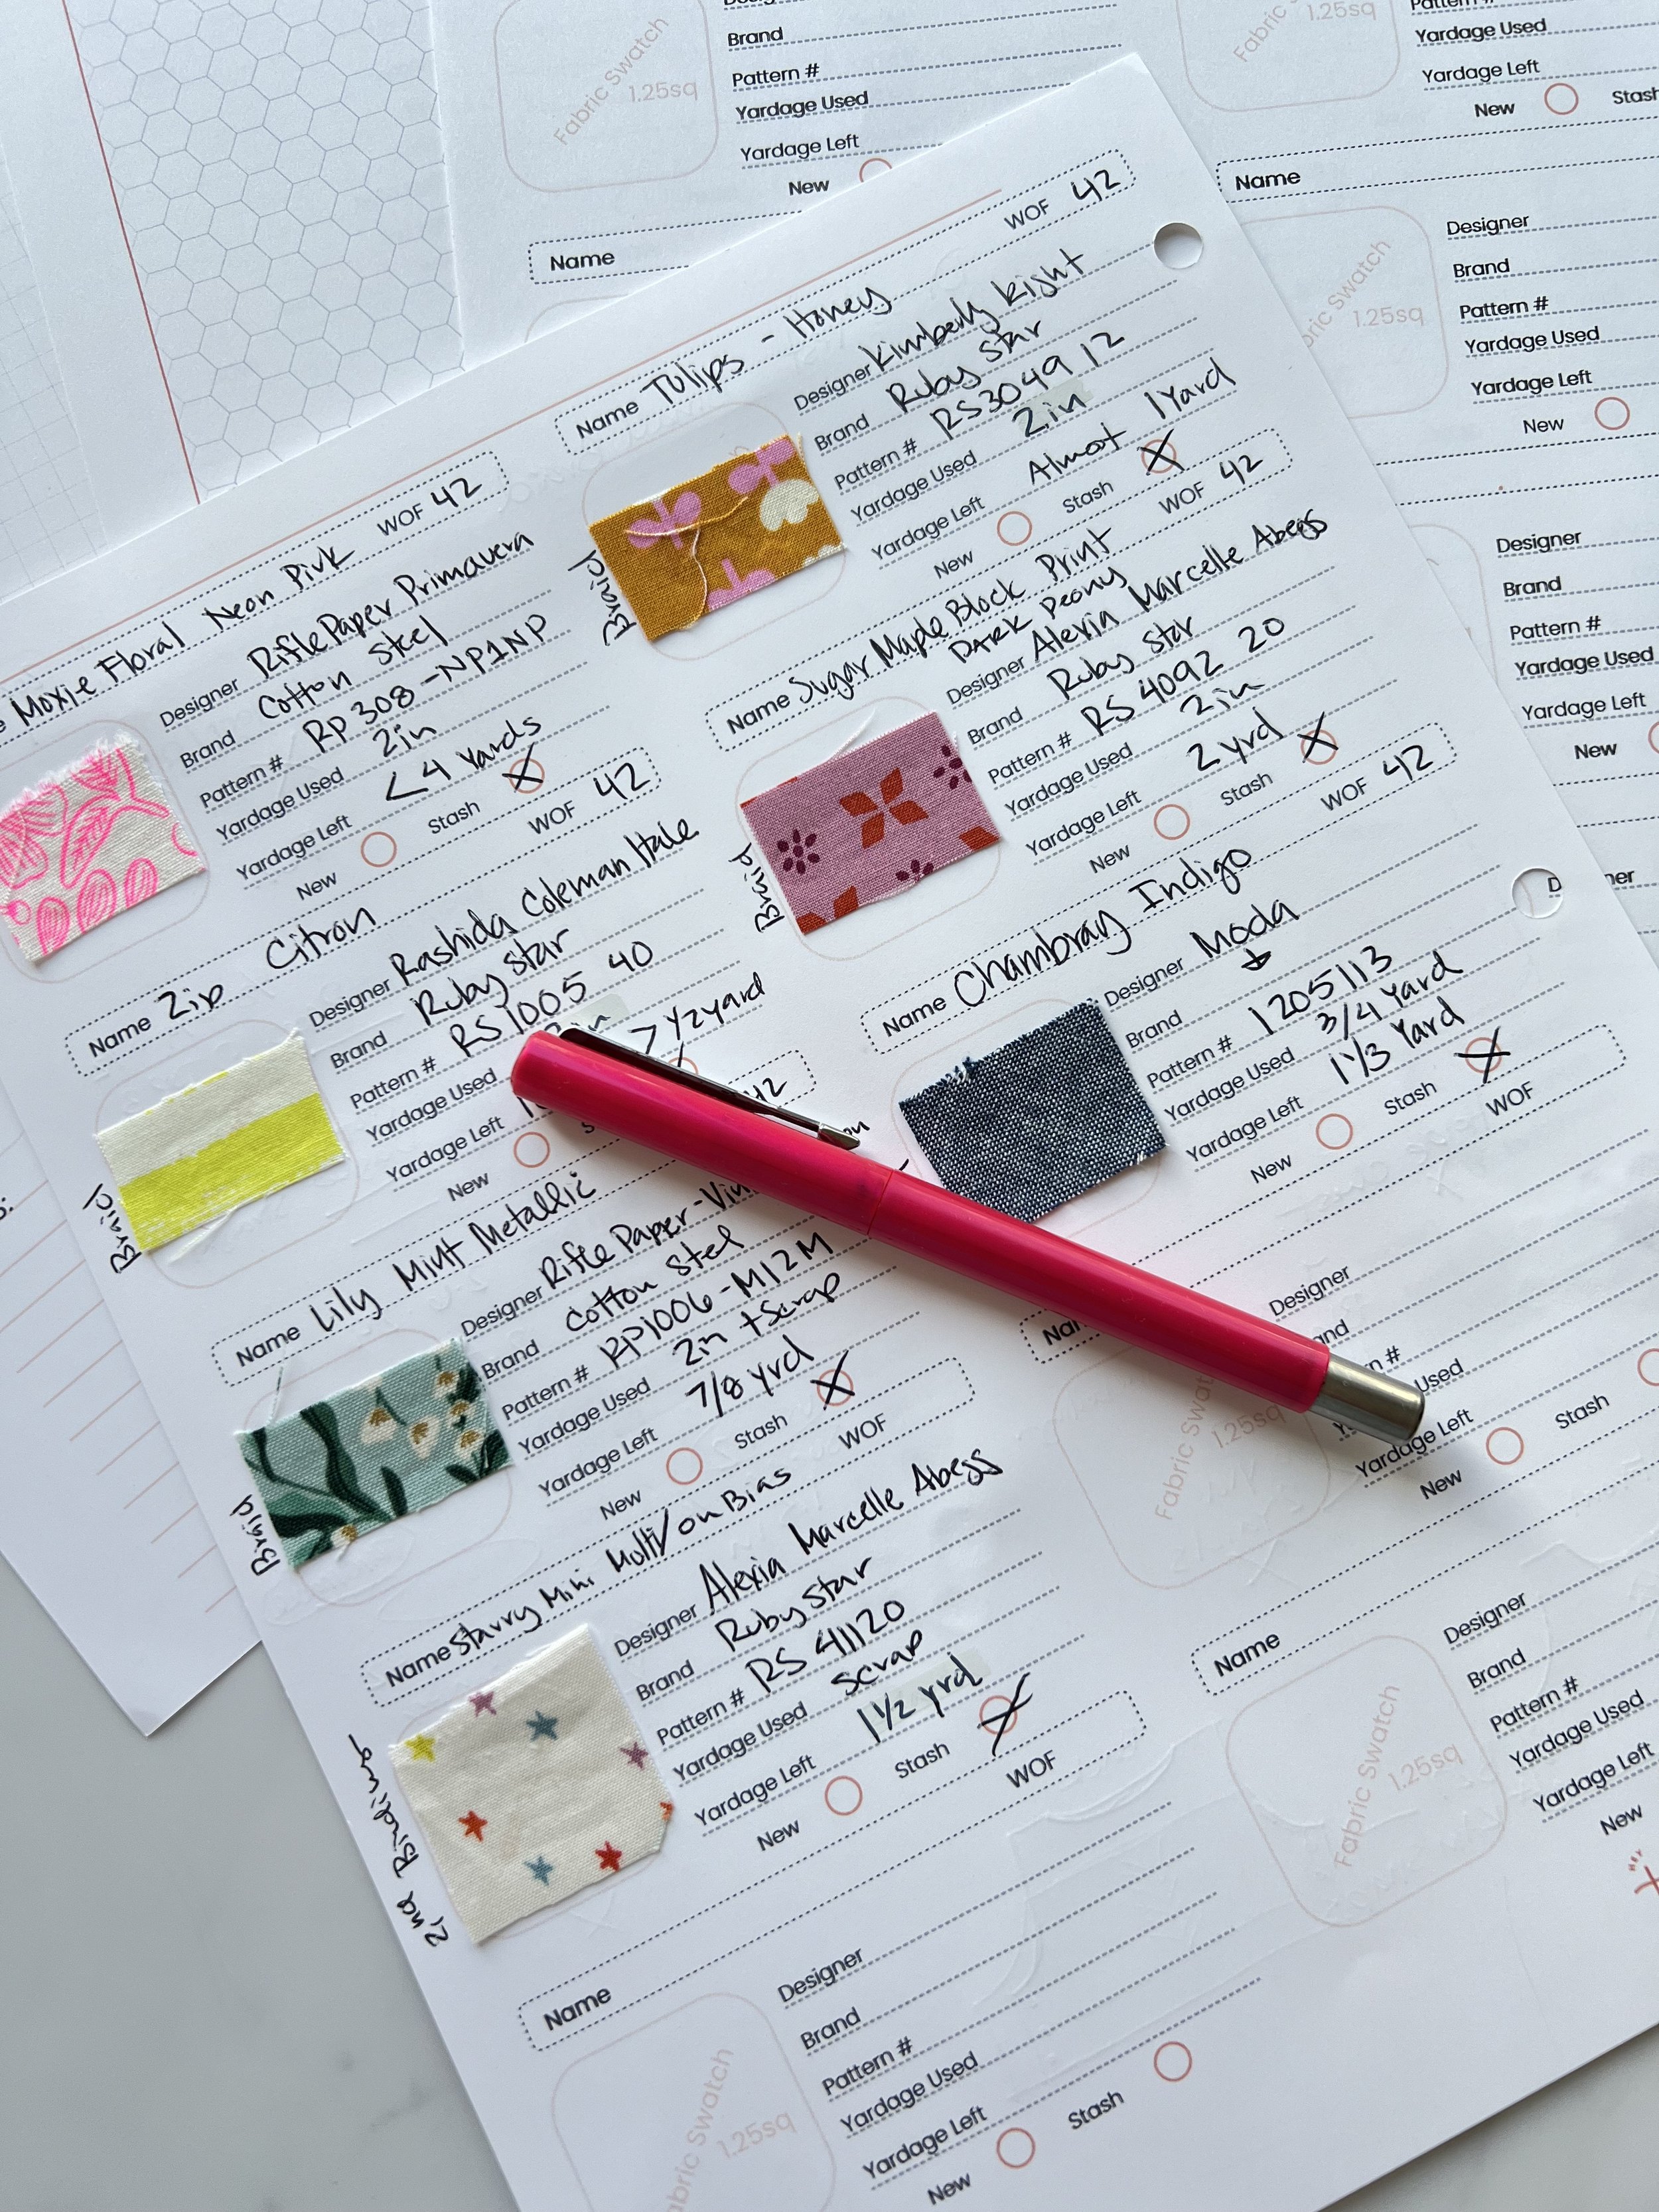 Designer
Brand
Pattern #
Yardage Used
Yardage Left
New
Fabric Swatch
1.25sq
Name
Fabric
1.25sq
Pattern #
Yardage Used
Yardage Left
New
Stash
Name
Fabric Swatch
1.25sq
Designer
Brand
Pattern #
Yardage Used
Yardage Left
New
Designer
Brand
Pattern #
Yardage Used
Yardage Left
New
Moxie Floral Neon Pink WOF 42
Designer Rifle Paper Primavera
Brand Cotton Steel
Pattern # RP308-NP1NP
Yardage Used 2in
Yardage Left < 4 Yards
New Stash X
Name Zip Citron WOF 42
Designer Rashida Coleman Hale
Brand Ruby Star
Pattern # RS1005 40
Yardage Used 2in
Yardage Left > 1/2 yard
New
Braid
Name Lily Mint Metallic 42
Designer Rifle Paper-
Brand Cotton Steel
Pattern # RP1006-M12M
Yardage Used 2in + Scrap
Yardage Left 7/8 yrd
New Stash X
Braid
Name Starry Mini Multi/on Bias WOF
Designer Alexia Marcelle Abegg
Brand Ruby Star
Pattern # RS 41120
Yardage Used scrap
Yardage Left 1 1/2 yrd
New Stash X
Binding
Name WOF
Designer
Brand
Pattern #
Yardage Used
Yardage Left
New Stash
Fabric Swatch
1.25sq
Name Tulips - Honey WOF 42
Designer Kimberly Kight
Brand Ruby Star
Pattern # RS3049 12
Yardage Used 2in
Yardage Left Almost 1 Yard
New Stash X
Braid
Name Sugar Maple Block Print WOF 42
Dark Peony
Designer Alexia Marcelle Abegg
Brand Ruby Star
Pattern # RS 4092 20
Yardage Used 2in
Yardage Left 2 yrd
New Stash X
Braid
Name Chambray Indigo WOF 42
Designer Moda
Brand ↓
Pattern # 1205113
Yardage Used 3/4 Yard
Yardage Left 1 1/3 Yard
New Stash X
WOF
Designer
Used
Yardage Left
New Stash
Fabric Swatch
1.25sq
Name
Designer
Brand
Pattern #
Yardage Used
Yardage Left
New
Fabric Swatch
1.25sq